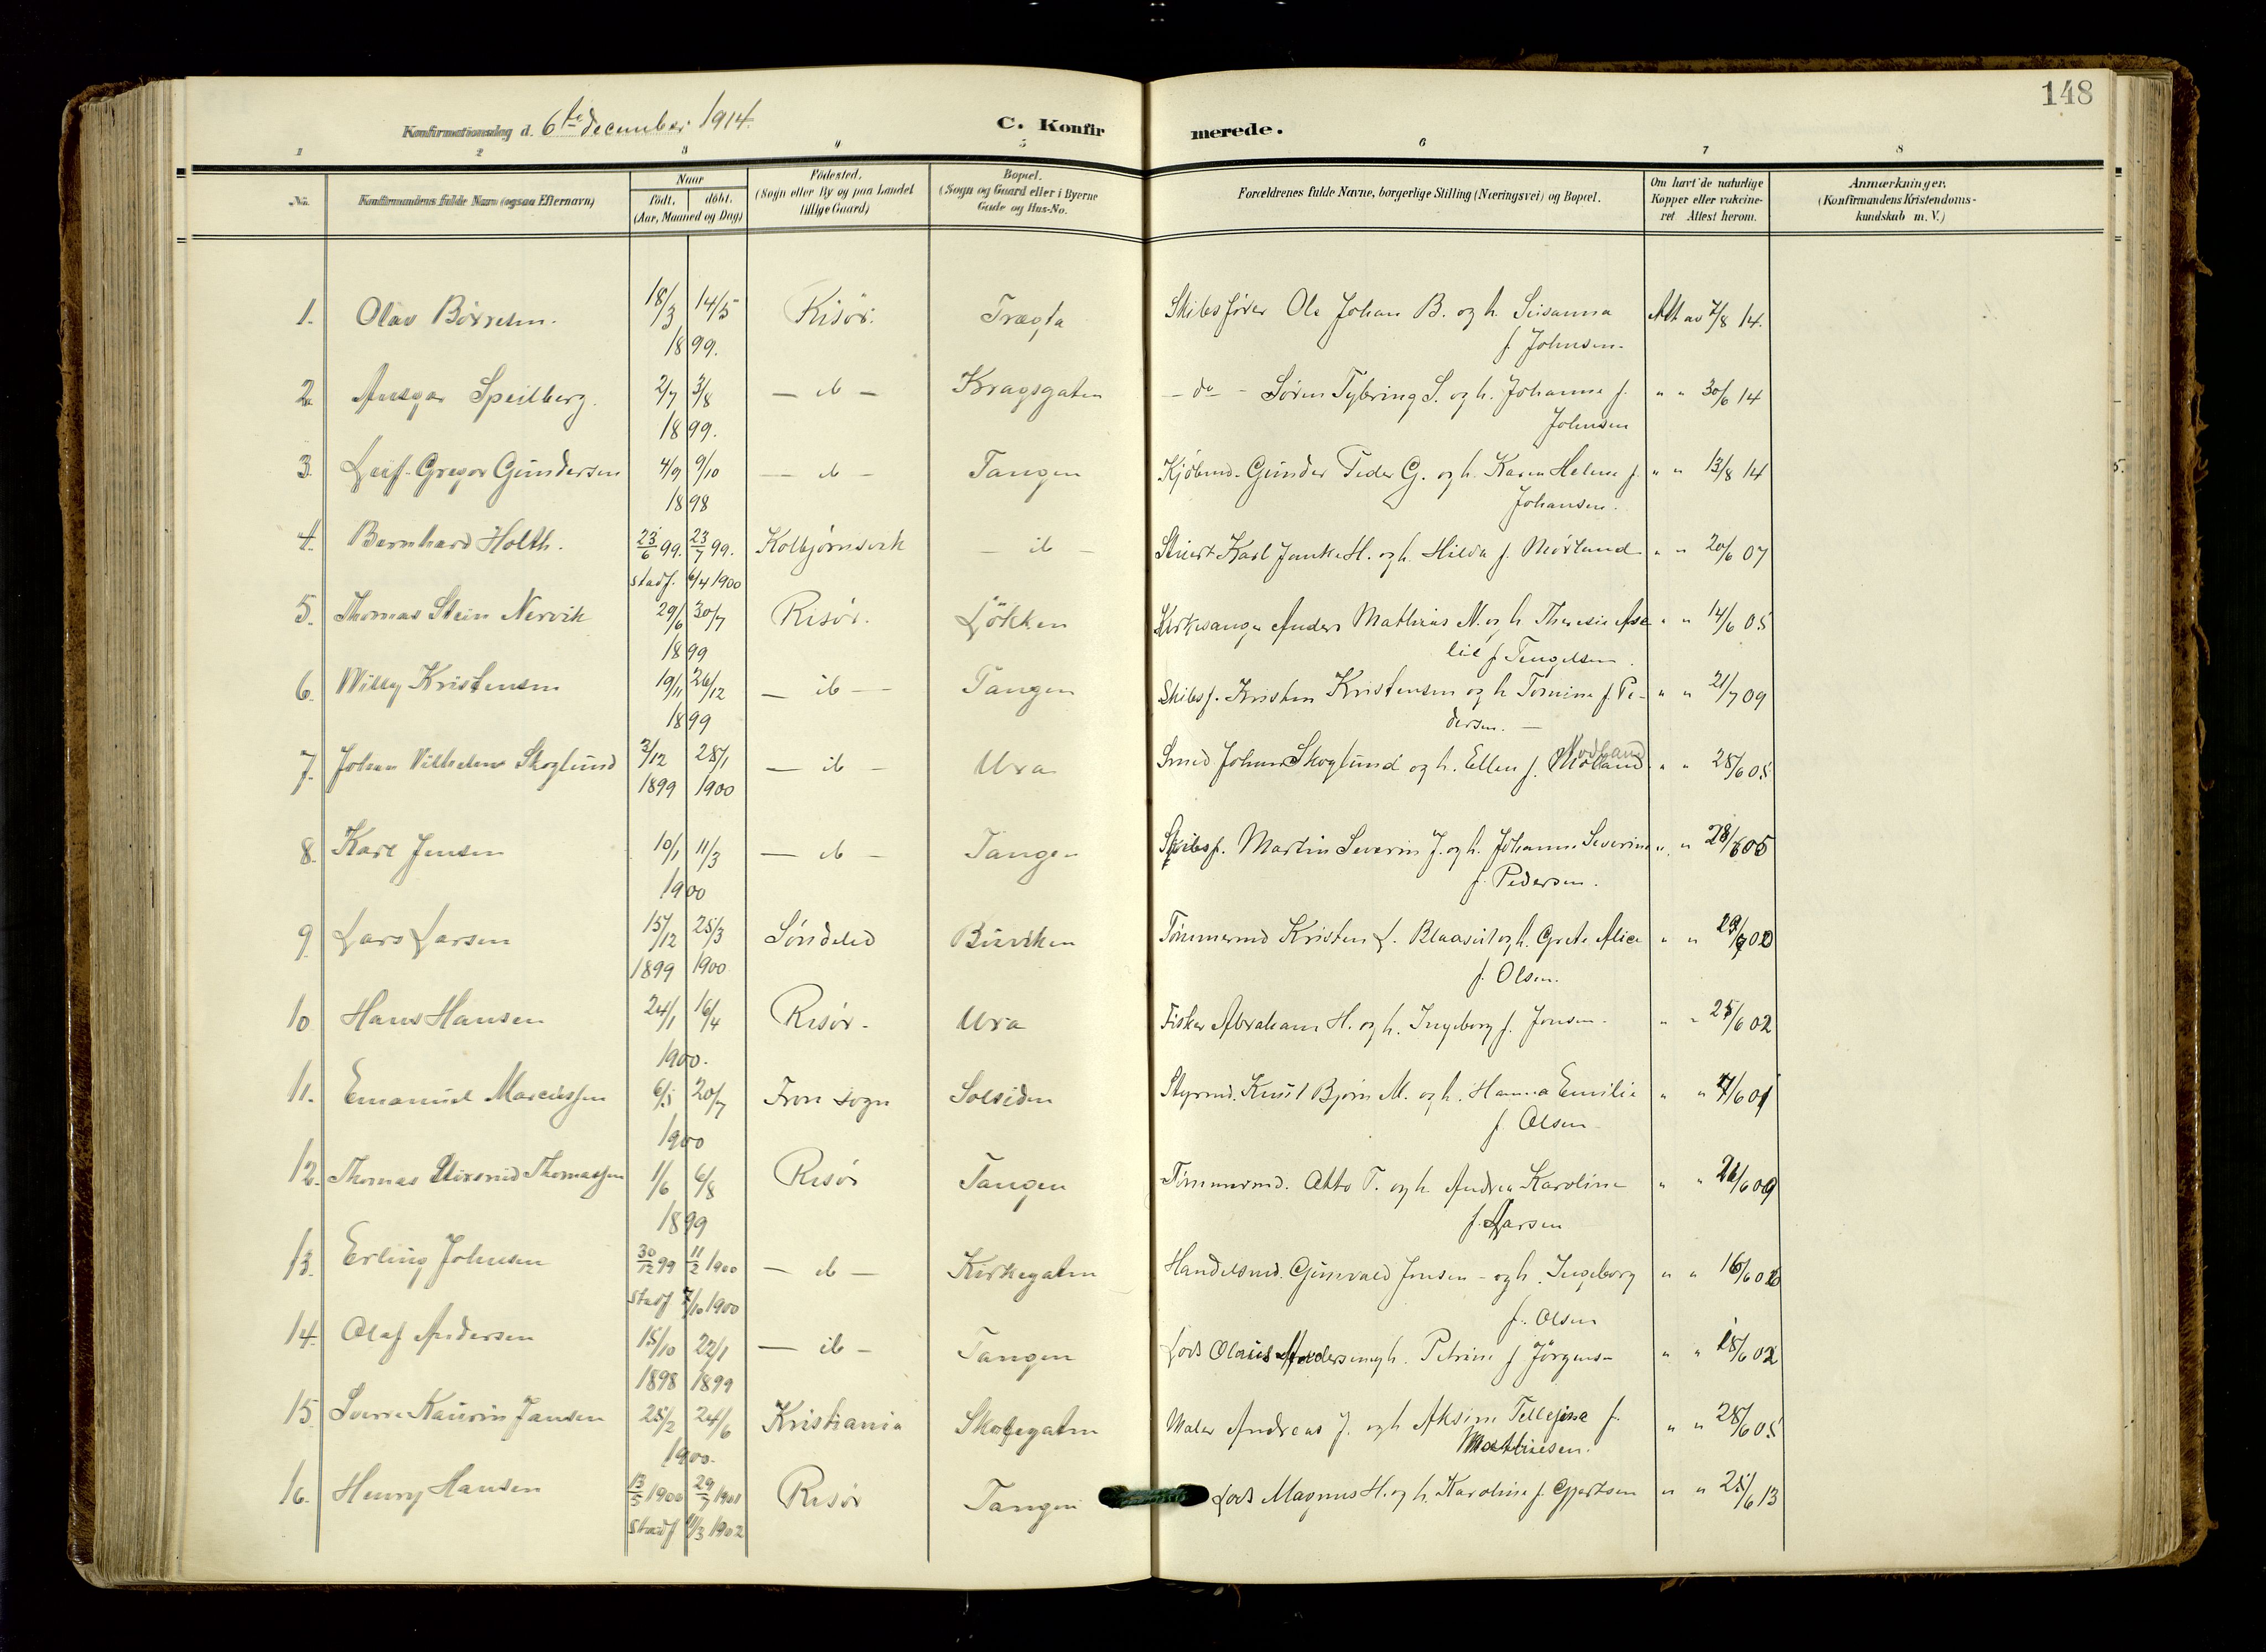 148
Konfirmationsdag d. 6te december 1914.
C. Konfir merede.
1 2 3 4 5 6 7 8
No. Konfirmandens fulde Navn (ogsaa Efternavn) Naar födt, döbt. (Aar, Maaned og Dag) Födested, (Sogn eller By og paa Landet tillige Gaard) Bopæl. (Sogn og Gaard eller i Byerne Gade og Hus-No. Forældrenes fulde Navne, borgerlige Stilling (Næringsvei) og Bopæl. Om havt de naturlige Kopper eller vakcine- ret Attest herom. Anmærkninger. (Konfirmandens Kristendoms- kundskab m. V.)
1. Olav Börresen. 18/3 14/5 Risör. Trægta Skibsfører Ole Johan B. og h. Susanna Att av 7/8 14.
1899. f. Johnsen.
2. Ansgar Speilberg. 2/7 3/8 — ib — Kragsgaten — do — Sören Tybring S. og h. Johanna f. " " 30/6 14
1899. Johnsen
3. Leif Gregor Gundersen 4/9 9/10 — ib — Tangen Kjöbmd. Gunder Peder G. og h. Karen Helene f. " " 13/8 14
1898 Johansen.
4. Bernhard Holth. 23/6 99. 23/7 99. Kolbjørnsvik — ib — Stuert Karl H. og h. Hilda f. Mörland " " 20/6 07
stadf. 6/4 1900
5. Thomas Stein Nervik 29/6 30/7 Risör. Lökken Kirkesanger Anders Mathias N. og h. Theresie " " 14/6 05
1899 f. Tengelsen.
6. Willy Kristensen 19/11 26/12 — ib — Tangen Skibsf. Kristen Kristensen og h. Tomine f. Pe- " " 21/7 09
1899 dersen. —
7. Johan Vilhelm Skoglund 3/12 28/1 — ib — Ura Smed Johan Skoglund og h. Ellen f. " " 28/6 05
1899 1900
8. Karl Jensen 10/1 11/3 — ib — Tangen Skibsf. Martin Severin J. og h. Johanne Severine " " 28/6 05
1900 f. Pedersen.
9. Lars Larsen 15/12 25/3 Söndeled Buviken Tömmermd Kristen L. og h. Grete Alice " "
1899 1900 f. Olsen.
10 Hans Hansen 24/1 16/4 Risör. Ura Fisker Abraham H. og h. Ingeborg f. Jensen. " " 25/6 02
1900.
11. Emanuel Marcussen 6/5 20/7 Fron sogn Solsiden Styrmd. Knut Bjørn M. og h. Hanna Emilie " "
1900 f. Olsen
12. Thomas Thomassen 1/6 6/8 Risör Tangen Tömmermd. Otto T. og h. Andrea Karoline " "
1899 f. Larsen
13. Erling Johnsen 30/12 99 11/2 1900 — ib — Kirkegaten Handelsmd. Gunvald Jonsen — og h. Ingeborg " "
stadf 7/10 1900 f. Olsen
14. Olaf Andersen 15/10 22/1 — ib — Tangen Lods Olaus Andersen og h. Petrine f Jörgens- " " 18/6 02
1898 1899
15. Sverre Kaurin Jansen 25/2 24/6 Kristiania Skolegaten Maler Andreas J. og h Aksine Tellefine f. " " 28/6 05
1900. Mathiesen.
16. Henry Hansen 13/5 1900 29/7 1901 Risör Tangen Lods Magnus H. og h. Karoline f. Gjertsen " " 25/6 13
stadf 11/3 1902